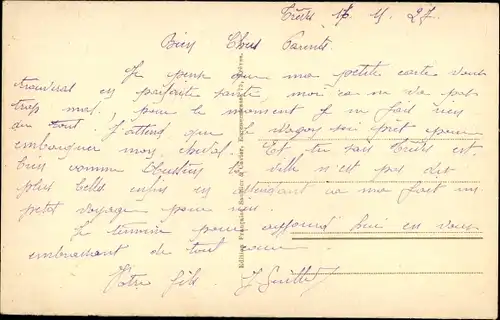 Trèves 15.11.27.
Bien Chers Parents
Je pense que ma petite carte vous
trouveras en parfaite santé, moi ça ne va pas
trop mal, pour le moment je ne fait rien
du tout. J'attend que le wagon soi prêt pour
embarquer mon cheval. Et tu sais Trèves est
bien comme ville n'est pas des
plus belles enfin en attendant ça me fait un
petit voyage pour rien.
Je termine pour aujourd'hui en vous
embrassant de tout cœur.
Votre fils.
Edition Française